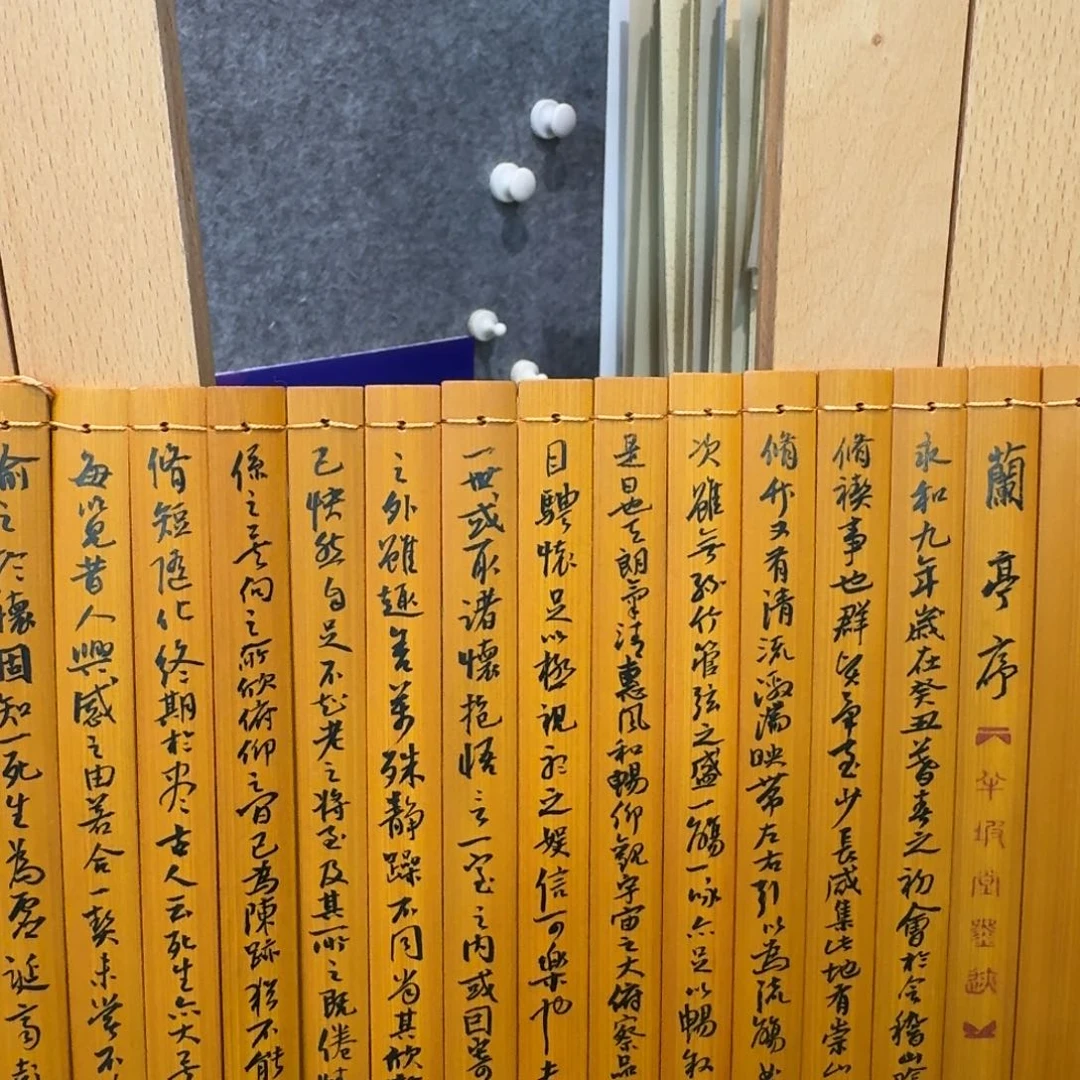 蘭亭序
永和九年歲在癸丑暮春之初會於會稽山陰
脩禊事也群賢畢至少長咸集此地有崇山
脩竹又有清流激湍映帶左右引以為流觴曲
次雖無絲竹管弦之盛一觴一詠亦足以暢敘
是日也天朗氣清惠風和暢仰觀宇宙之大俯察品
目騁懷足以極視聽之娛信可樂也夫
一世或取諸懷抱悟言一室之內或因寄
之外雖趣舍萬殊靜躁不同當其欣
己快然自足不知老之將至及其所之既倦情
係之矣向之所欣俯仰之間已為陳跡猶不能
脩短隨化終期於盡古人云死生亦大矣
每覽昔人興感之由若合一契未嘗不
喻之於懷固知一死生為虛誕齊彭